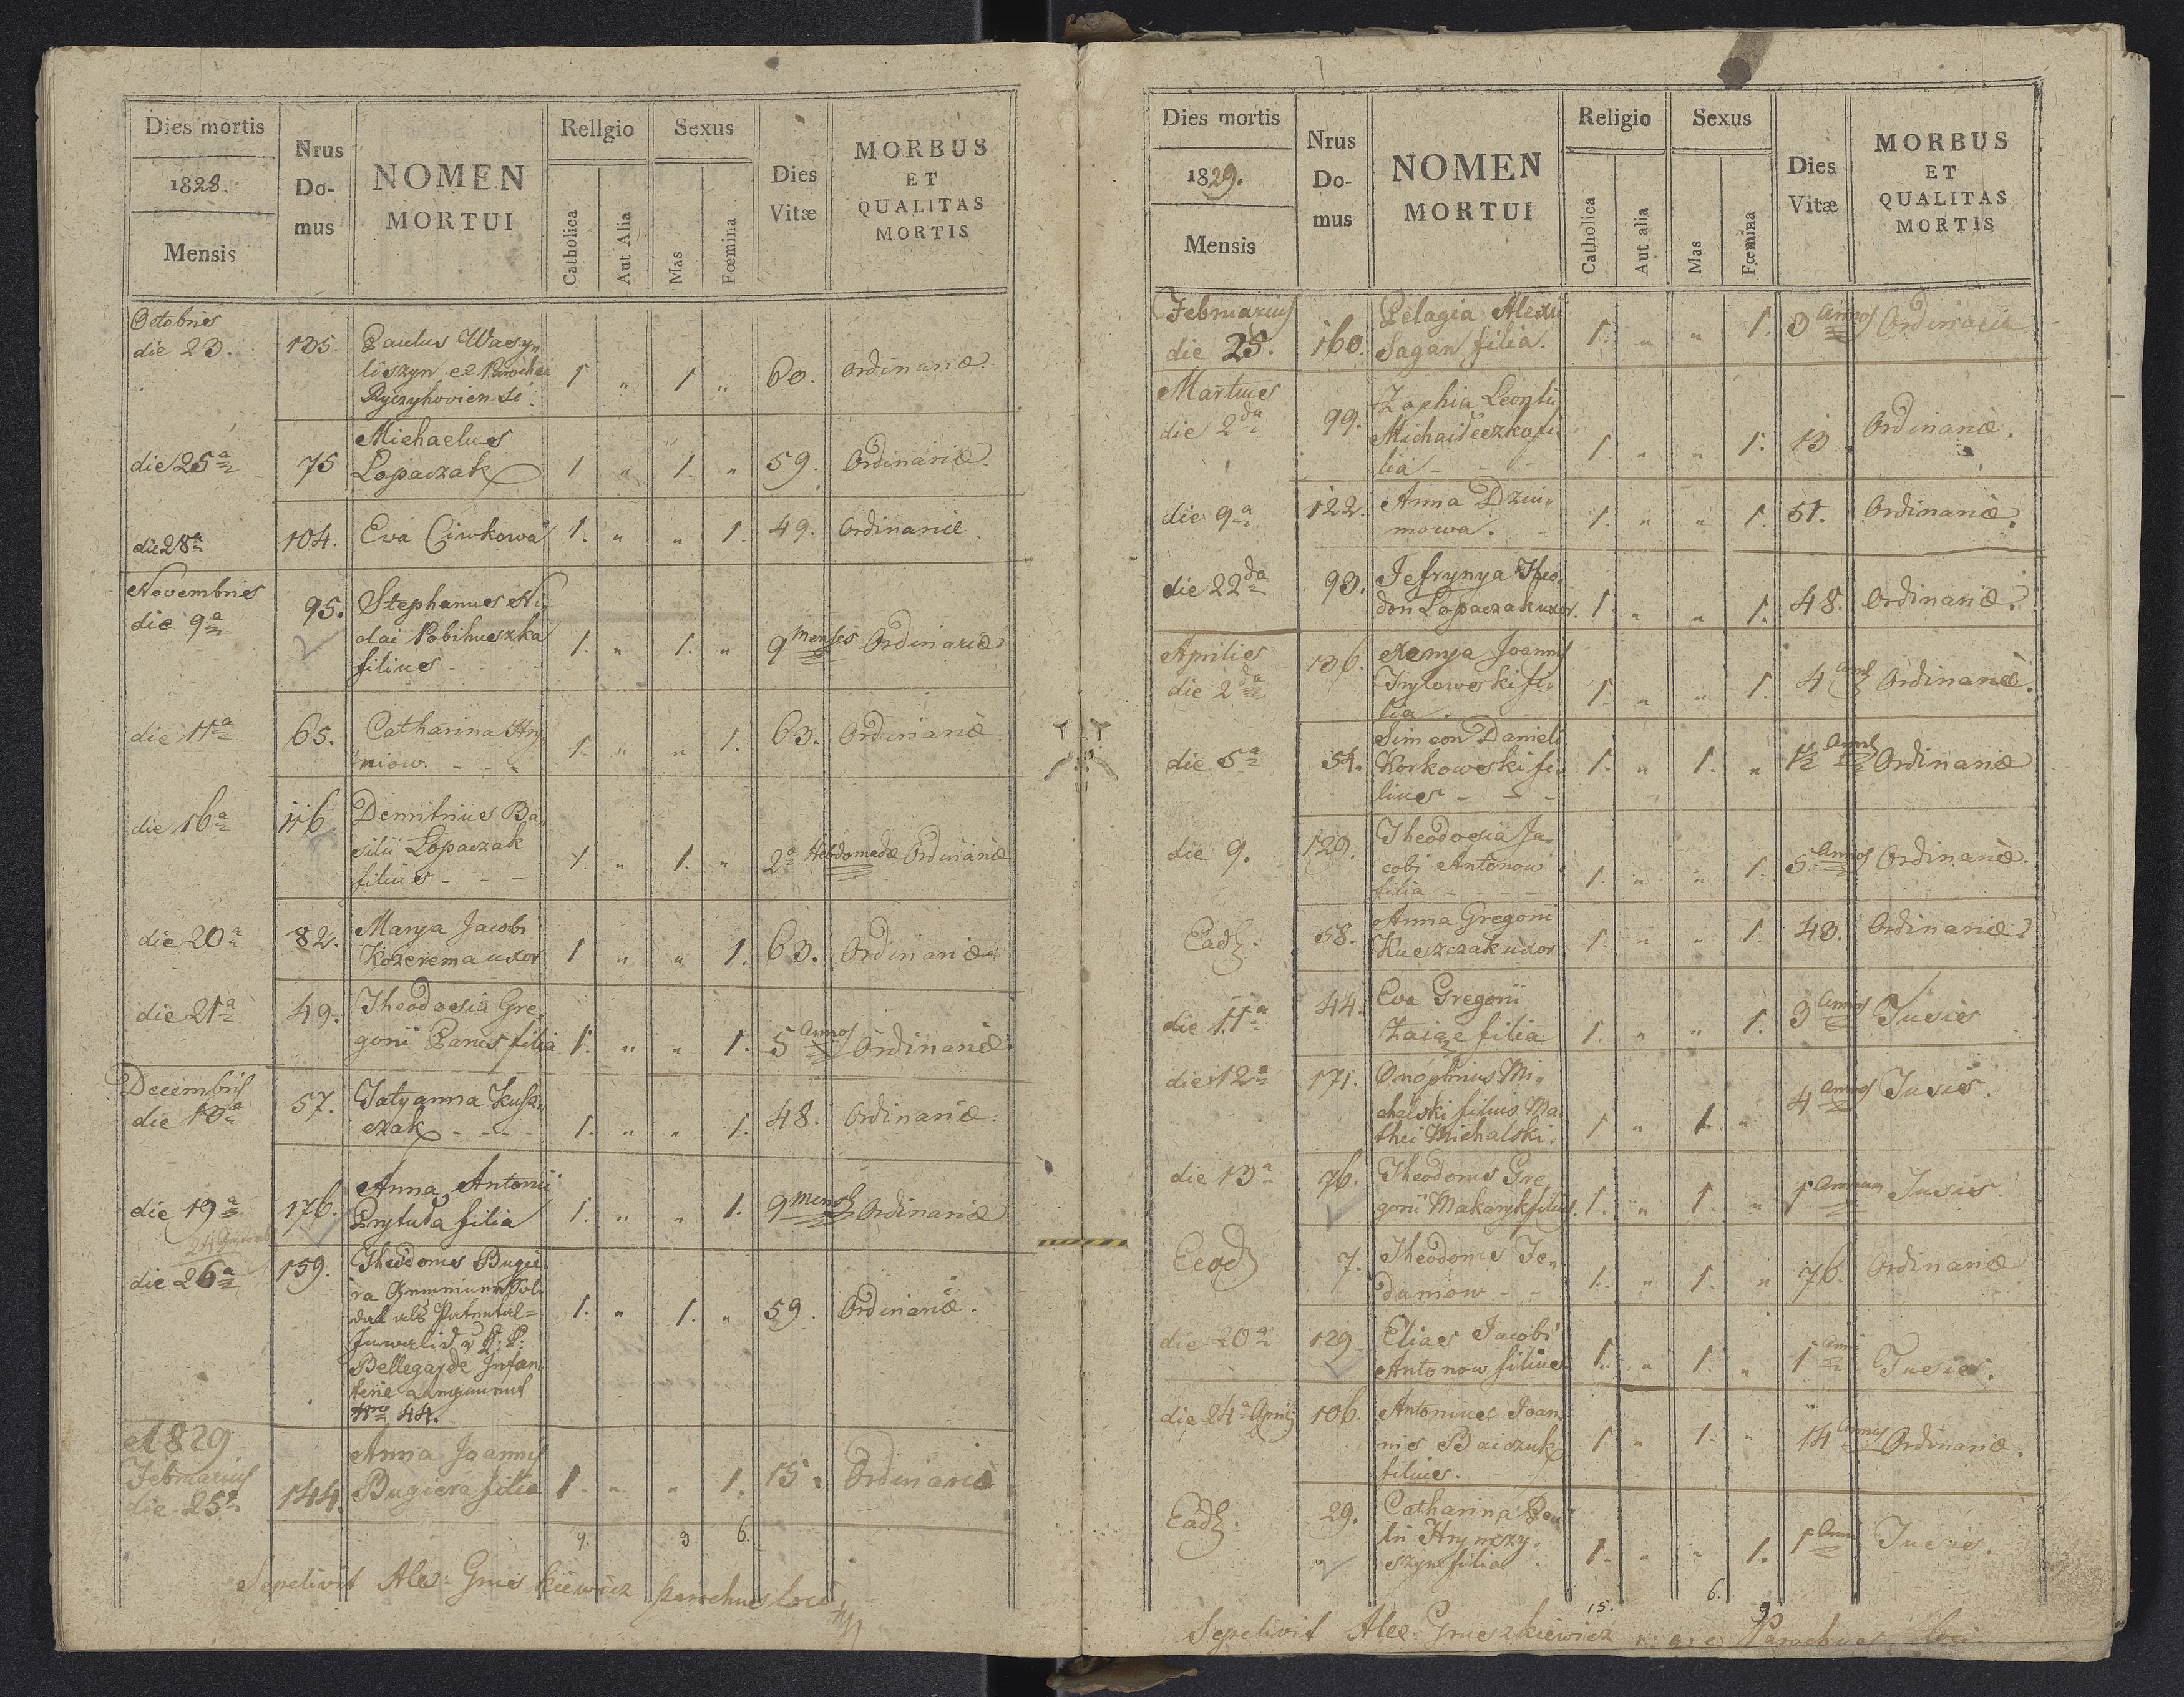 Dies mortis
1828.
Mensis
Nrus
Do-
mus
NOMEN
MORTUI
Rellgio
Catholica
Aut Alia
Sexus
Mas
Fœmina
Dies
Vitæ
MORBUS
ET
QUALITAS
MORTIS
Octobris
die 23. 135. Paulus Wasy„
liszyn ex Parochia 1 „ 1 „ 60. Ordinariæ.
Ryczyhoviensi.
Michaelus
die 25ª 75 Lopaczak 1 „ 1. „ 59. Ordinariæ.
die 28ª 104. Eva Ciwkowa 1. „ „ 1. 49. Ordinariæ.
Novembris
die 9ª 95. Stephanus Ni„
olai Pobihuszka 1. „ 1. „ 9 menses Ordinariæ
filius - - -
die 11ª 65. Catharina Hry„
niow. - - - 1. „ „ 1. 63. Ordinariæ.
die 16ª 116. Demitrius Ba„
silii Lopaczak 1. „ 1. „ 2æ Hebdomadæ Ordinariæ
filius - - -
die 20ª 82. Marya Jacobi
Kozerema uxor 1 „ „ 1. 63. Ordinariæ
die 21ª 49. Theodosia Gre„
gorii Panas filia 1. „ „ 1. 5 annos Ordinariæ.
Decembris
die 10ª 57. Tatyanna Kusz„
czak - - - 1. „ „ 1. 48. Ordinariæ.
die 19ª 176. Anna Antonii
Prytuda filia 1. „ „ 1. 9 mens Ordinariæ
die 26ª 159. Theodorus Bugie„
ra 1. „ 1. „ 59. Ordinariæ.
als Patental=
Invalid v
Bellegarde Infan„
terie
Nro 44.
1829
Februarius
die 25ª 144. Anna Joannis
Bugiera filia 1. „ „ 1. 15 „ Ordinariæ
9. 3 6.
Sepelivit Alex: Gruszkiewicz parochus loci
Dies mortis
1829.
Mensis
Nrus
Do-
mus
NOMEN
MORTUI
Religio
Catholica
Aut alia
Sexus
Mas
Fœmina
Dies
Vitæ
MORBUS
ET
QUALITAS
MORTIS
Februarius
die 25. 160. Pelagia Alexii
Sagan filia. 1. „ „ 1. 3 annos Ordinariæ
Martius
die 2da 99. Zophia Leontii
Michaideczko fi„ 1 „ „ 1. 13 „ Ordinariæ.
lia - - -
die 9ª 122. Anna Dziu„
mowa. 1. „ „ 1. 51. Ordinariæ.
die 22da 93. Jefrynya Theo„
dori Lopaczak uxor. 1. „ „ 1. 48. Ordinariæ.
Aprilis
die 2da 136. Xenya Joannis
Trylowski fi„ 1. „ „ 1. 4 ann Ordinariæ.
lia - - -
die 5ª 54. Simeon Danieli
Korkowski fi„ 1. „ 1. „ 1½ Ann Ordinariæ
lius - - -
die 9. 129. Theodosia Ja„
cobi Antonow 1. „ „ 1. 5 Annos Ordinariæ.
filia - - - -
Ead. 58. Anna Gregorii
Kuszczak uxor 1. „ „ 1. 43. Ordinariæ.
die 11ª 44. Eva Gregorii
Zaiąc filia 1. „ „ 1. 3 annos Tusis
die 12ª 171. Onophrius Mi„
chalski filius Ma„ 1 „ 1. „ 4 annos Tusis.
thei Michalski.
die 13ª 76. Theodorus Gre„
gorii Makaryk filius. 1. „ 1. „ 1 Annum Tusis.
Eead 7. Theodorus Fe„
damow - - 1. „ 1. „ 76. Ordinariæ
die 20ª 129. Elias Jacobi
Antonow filius 1. „ 1. „ 1 Anni Tusis.
die 24ª Aprilis 106. Antonius Joan„
nis Baiczuk 1. „ 1. „ 14 annis Ordinariæ.
filius. - -
Ead. 29. Catharina Pau
lii Hrynczy„
szyn filia 1. „ „ 1. 1 Anni Tusis.
15. 6. 9
Sepelivit Alex: Gruszkiewicz r. g. c. Parochus loci